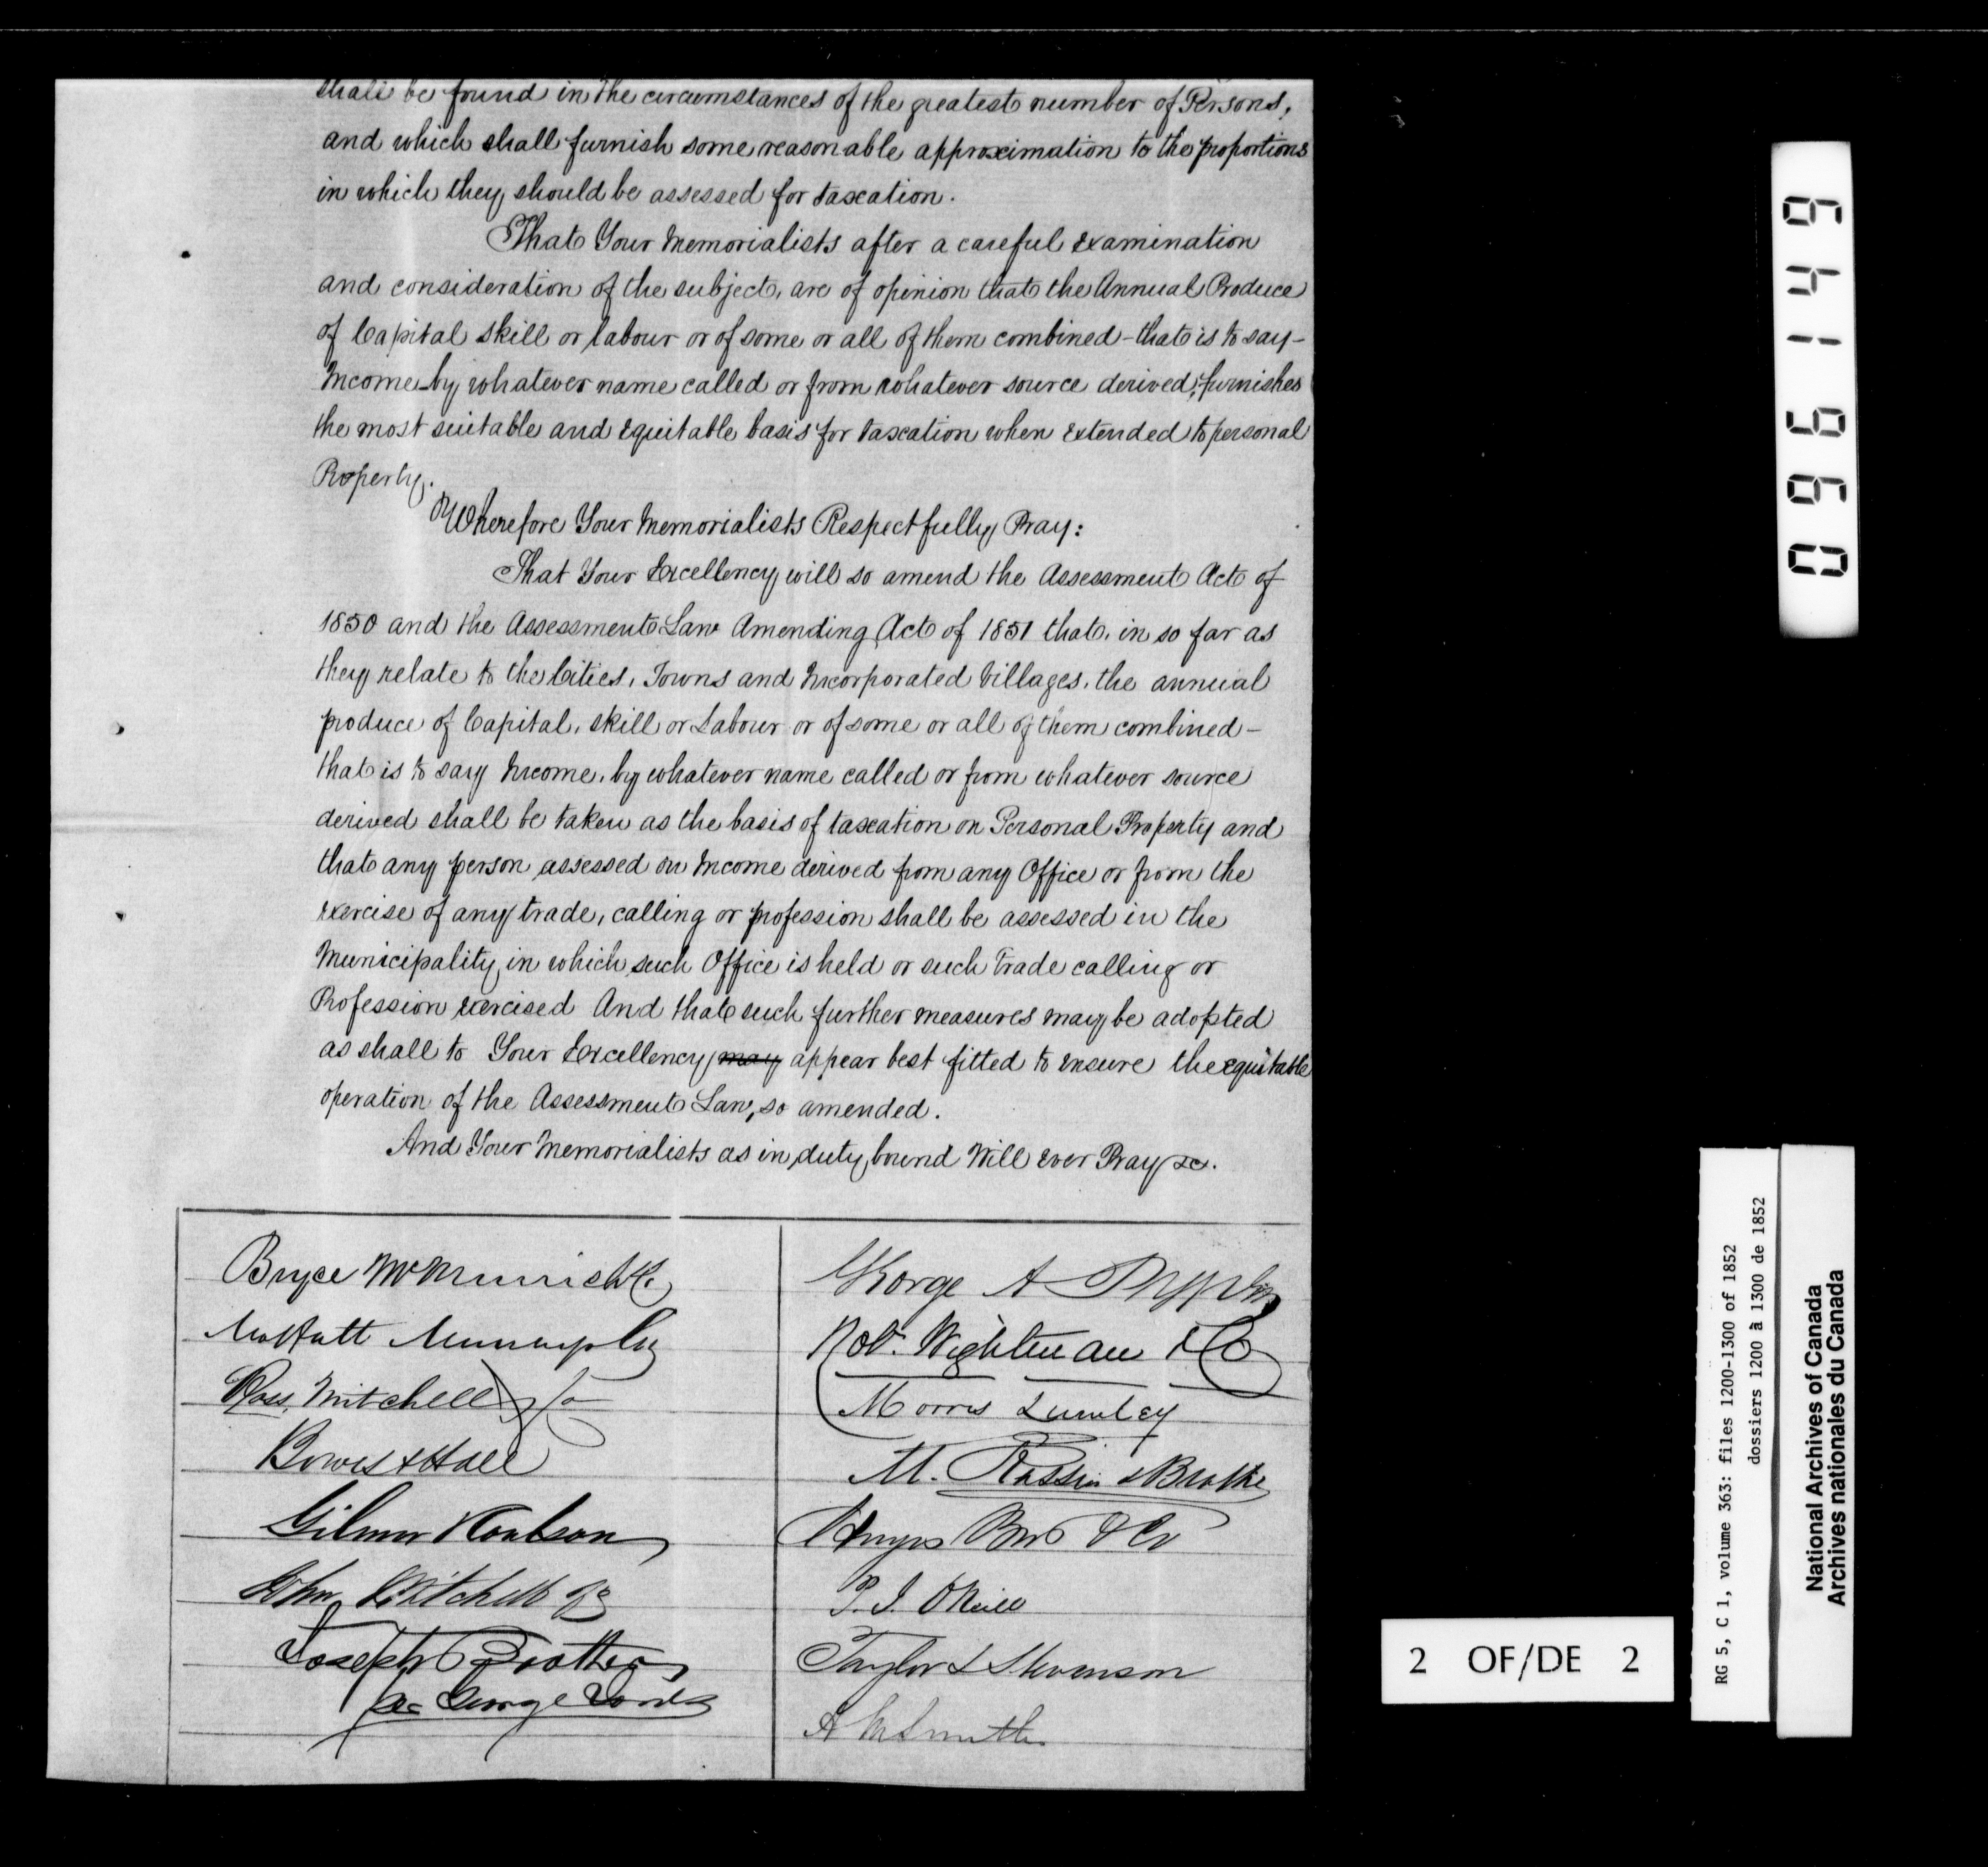 shall be found in the circumstances of the greatest number of Persons,
and which shall furnish some reasonable approximation to the proportions
in which they should be assessed for taxation.
That Your Memorialists after a careful examination
and consideration of the subject, are of opinion that the Annual Produce
of Capital skill or labour or of some or all of them combined - that is to say -
Income by whatever name called or from whatever source derived, furnishes
the most suitable and equitable basis for taxation when extended to personal
Property.
Wherefore Your Memorialists Respectfully Pray:
That Your Excellency will so amend the Assessment Act of
1850 and the Assessment Law Amending Act of 1851 that, in so far as
they relate to the Cities, Towns and Incorporated Villages, the annual
produce of Capital, skill or Labour or of some or all of them combined -
that is to say Income, by whatever name called or from whatever source
derived shall be taken as the basis of taxation on Personal Property and
that any person assessed on Income derived from any Office or from the
exercise of any trade, calling or profession shall be assessed in the
Municipality in which such Office is held or such trade calling or
Profession exercised And that such further measures may be adopted
as shall to Your Excellency may appear best fitted to ensure the equitable
operation of the Assessment Law, so amended.
And Your Memorialists as in duty bound Will ever Pray &c.
Bryce McMurrich & Co
Moffatt Murray & Co
Ross Mitchell & Co
Bowes & Hall
Gilmor & Coulson
John Mitchell
Joseph
per George
George A
Robt. Wightman & Co
Morris Lumley
M. Rossin & Brothers
Bros & Co
O'Neill
Taylor & Stevenson
A M Smith
096149
2 OF/DE 2
RG 5, C 1, volume 363: files 1200-1300 of 1852
dossiers 1200 à 1300 de 1852
National Archives of Canada
Archives nationales du Canada